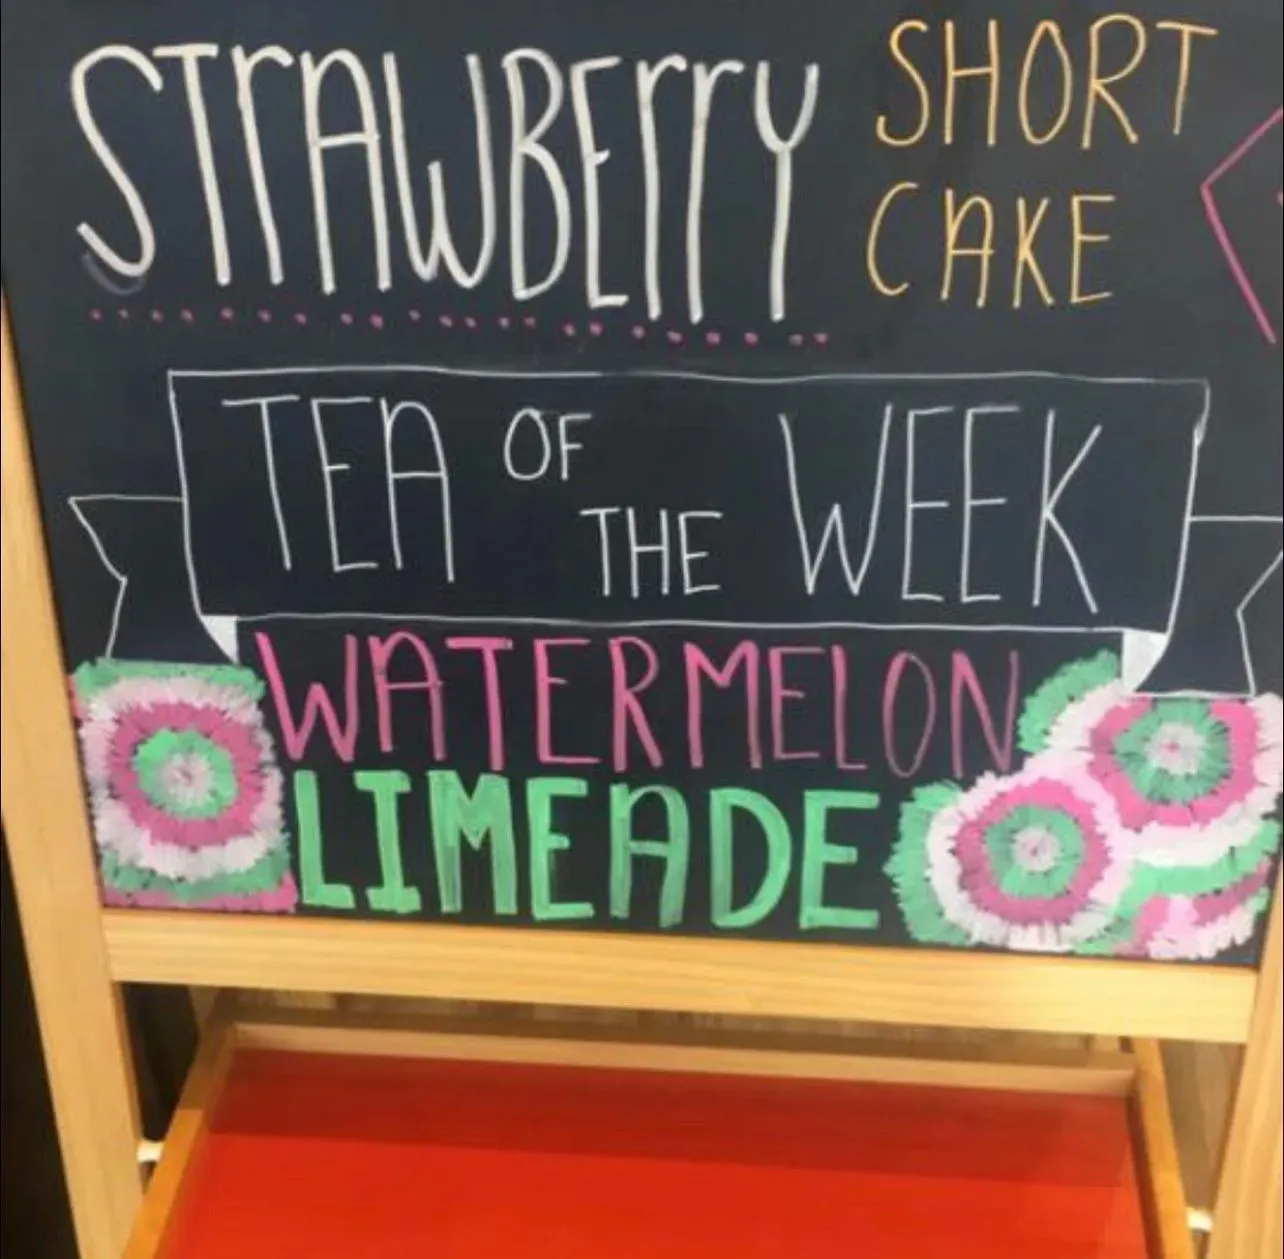 STRAWBERRY SHORT
CAKE
TEA OF THE WEEK
WATERMELON
LIMEADE